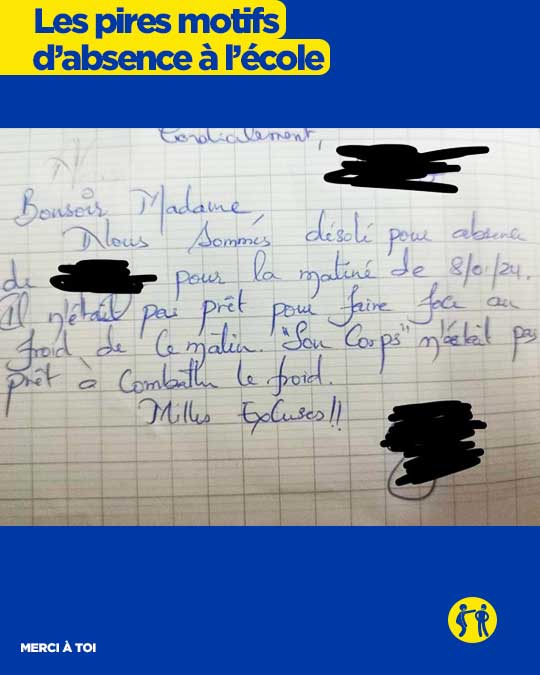 Les pires motifs
d'absence à l'école
Cordialement,
Bonsoir Madame,
Nous Sommes désolé pour absence
de pour la matiné de 8/01/24.
Il n'était pas prêt pour faire face au
froid de ce matin. "Son Corps" n'était pas
prêt à Combattre le froid.
Milles Excuses!!
MERCI À TOI